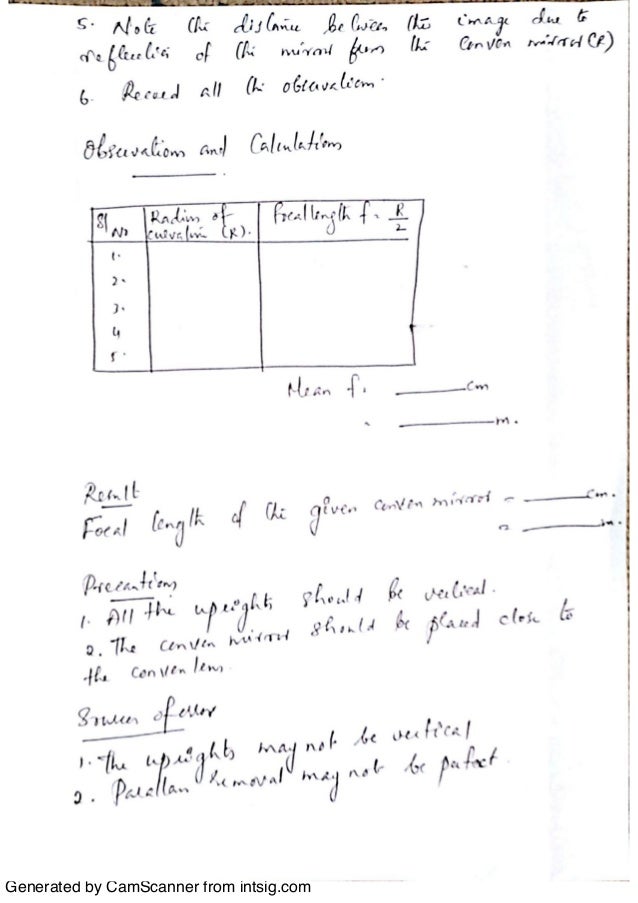 5. Note the distance between the image due to
reflection of the mirror from the convex mirror (R)
6. Record all the observation.
Observations and Calculations
Sl No | Radius of curvature (R). | Focal length f = R/2
1.
2.
3.
4
5.
Mean f = ______cm
= ______m.
Result
Focal length of the given convex mirror = ______cm.
= ______m.
Precautions
1. All the uprights should be vertical.
2. The convex mirror should be placed close to
the convex lens.
Sources of error
1. The uprights may not be vertical
2. Parallax removal may not be perfect.
Generated by CamScanner from intsig.com